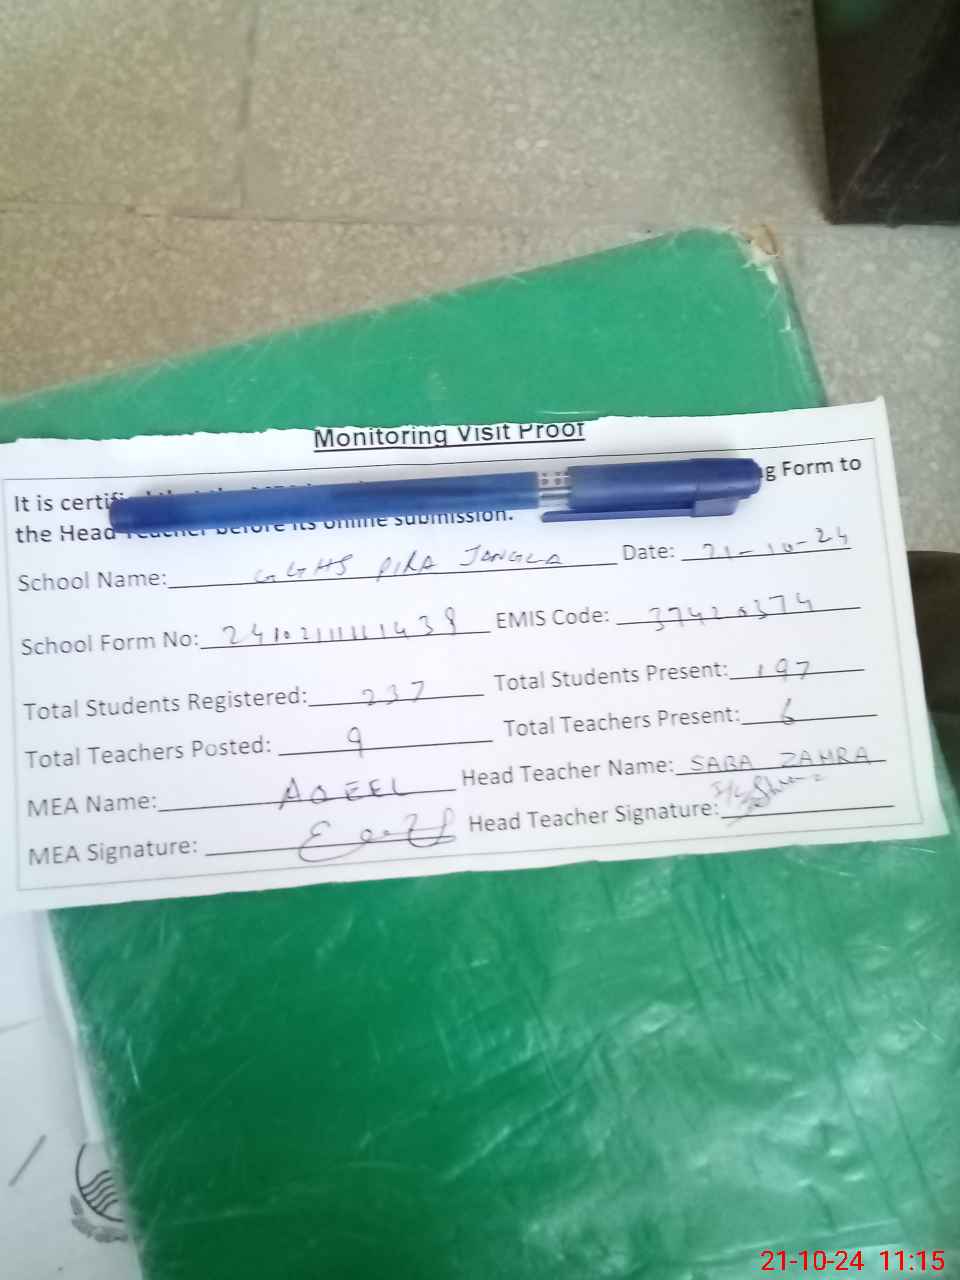 Monitoring Visit Proof
It is certified that the g Form to
the Head Teacher before its online submission.
School Name: GGHS PIRA JANGLA Date: 21-10-24
School Form No: 2410211111438 EMIS Code: 37420374
Total Students Registered: 237 Total Students Present: 197
Total Teachers Posted: 9 Total Teachers Present: 6
MEA Name: AQEEL Head Teacher Name: SABA ZAHRA
MEA Signature: Head Teacher Signature:
21-10-24 11:15